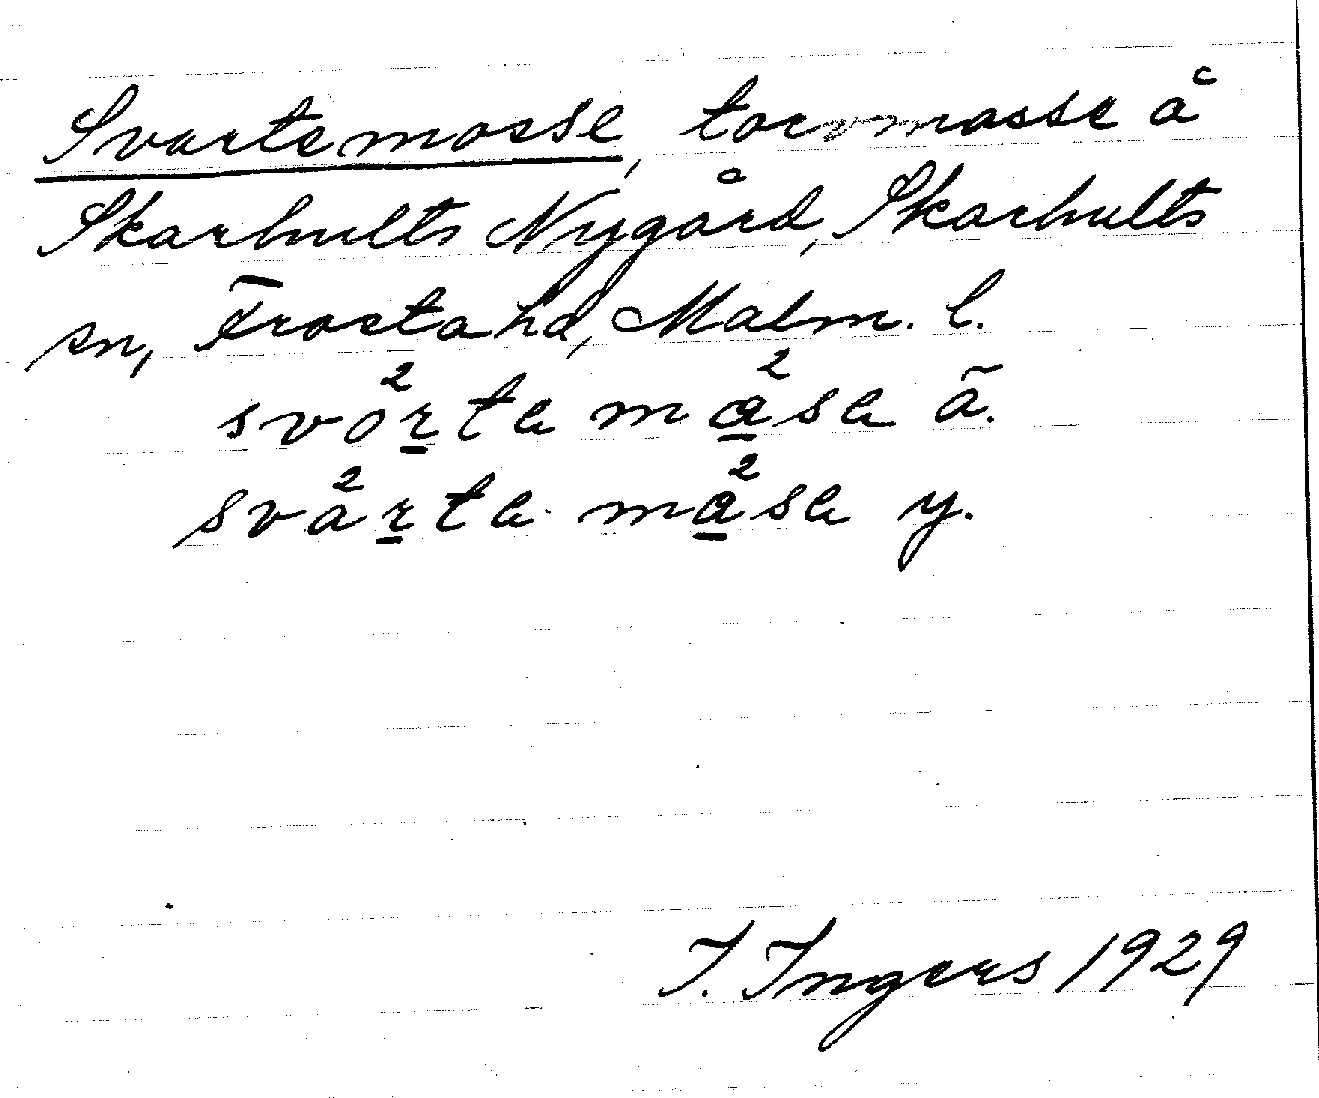 Svartemosse, torvmosse å
Skarhults Nygård, Skarhults
sn, Frosta hd, Malm. l.
svo²r̲ta må̲²sa ã.
svå²r̲ta må̲²sa y.
I. Ingers 1929